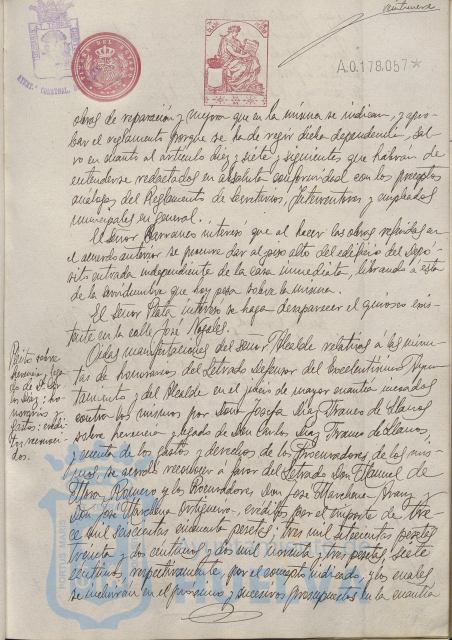 veintinueve
A.0.178.057*
obras de reparación y mejora que en la misma se indican, y apro-
bar el reglamento porque se ha de regir dicha dependencia, sal-
vo en cuanto al artículo diez y siete y siguientes que habrán de
entenderse redactados en absoluta conformidad con los preceptos
análogos del Reglamento de Secretarios, Interventores y empleados
municipales en general.
El Señor Barranco interesó que al hacer las obras referidas en
el acuerdo anterior se procure dar al piso alto del edificio del Depó-
sito entrada independiente de la casa inmediata, librando a esta
de la servidumbre que hoy pesa sobre la misma.
El Señor Plata interesó se haga desaparecer el quiosco exis-
tente en la calle José Nogales.
Pleito sobre
herencia y lega-
do de D. Car-
los Díaz: ho-
norarios y
gastos: crédi-
tos reconoci-
dos.
Oídas manifestaciones del Señor Alcalde relativas á las minu-
tas de honorarios del Letrado defensor del Excelentísimo Ayun-
tamiento y del Alcalde en el juicio de mayor cuantía incoados
contra los mismos por Doña Josefa Díaz Franco de Llanos
sobre herencia y legado de Don Carlos Díaz Franco de Llanos,
y cuenta de los gastos y derechos de los Procuradores de los mis-
mos, se acordó reconocer á favor del Letrado Don Manuel de
Mora Romero y los Procuradores Don José Marchena
Don José Marchena créditos por el importe de tre-
ce mil seiscientas cincuenta pesetas: tres mil setecientas pesetas
treinta y dos céntimos y dos mil noventa y tres pesetas siete
céntimos, respectivamente, por el concepto indicado, los cuales
se incluirán en el próximo y sucesivos presupuestos en la cuantía
PORTUS MARIS